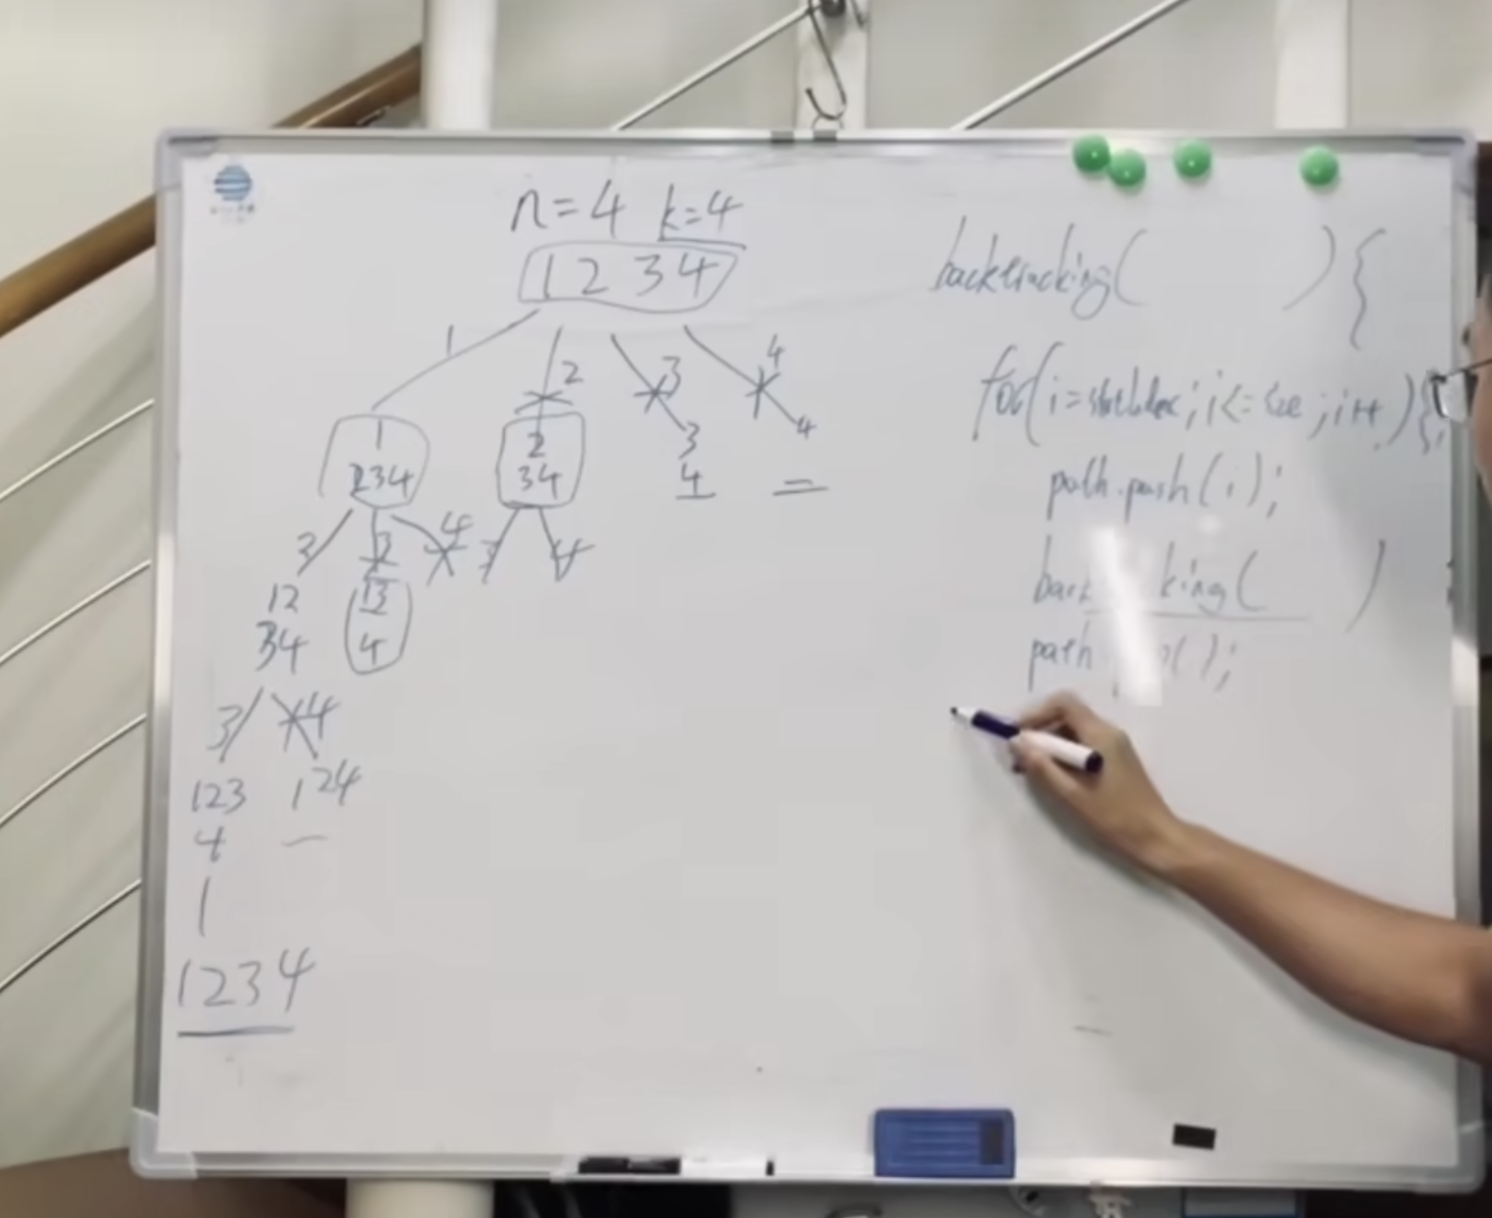 n=4 k=4
1 2 3 4
1 2 3 4
1
234
2
34
3
4
4
3 3 4 3 4
12
34
13
4
3 4
123
4
124
1234
backtracking( ){
for(i= ;i<=size;i++){
path.push(i);
king( )
path ();